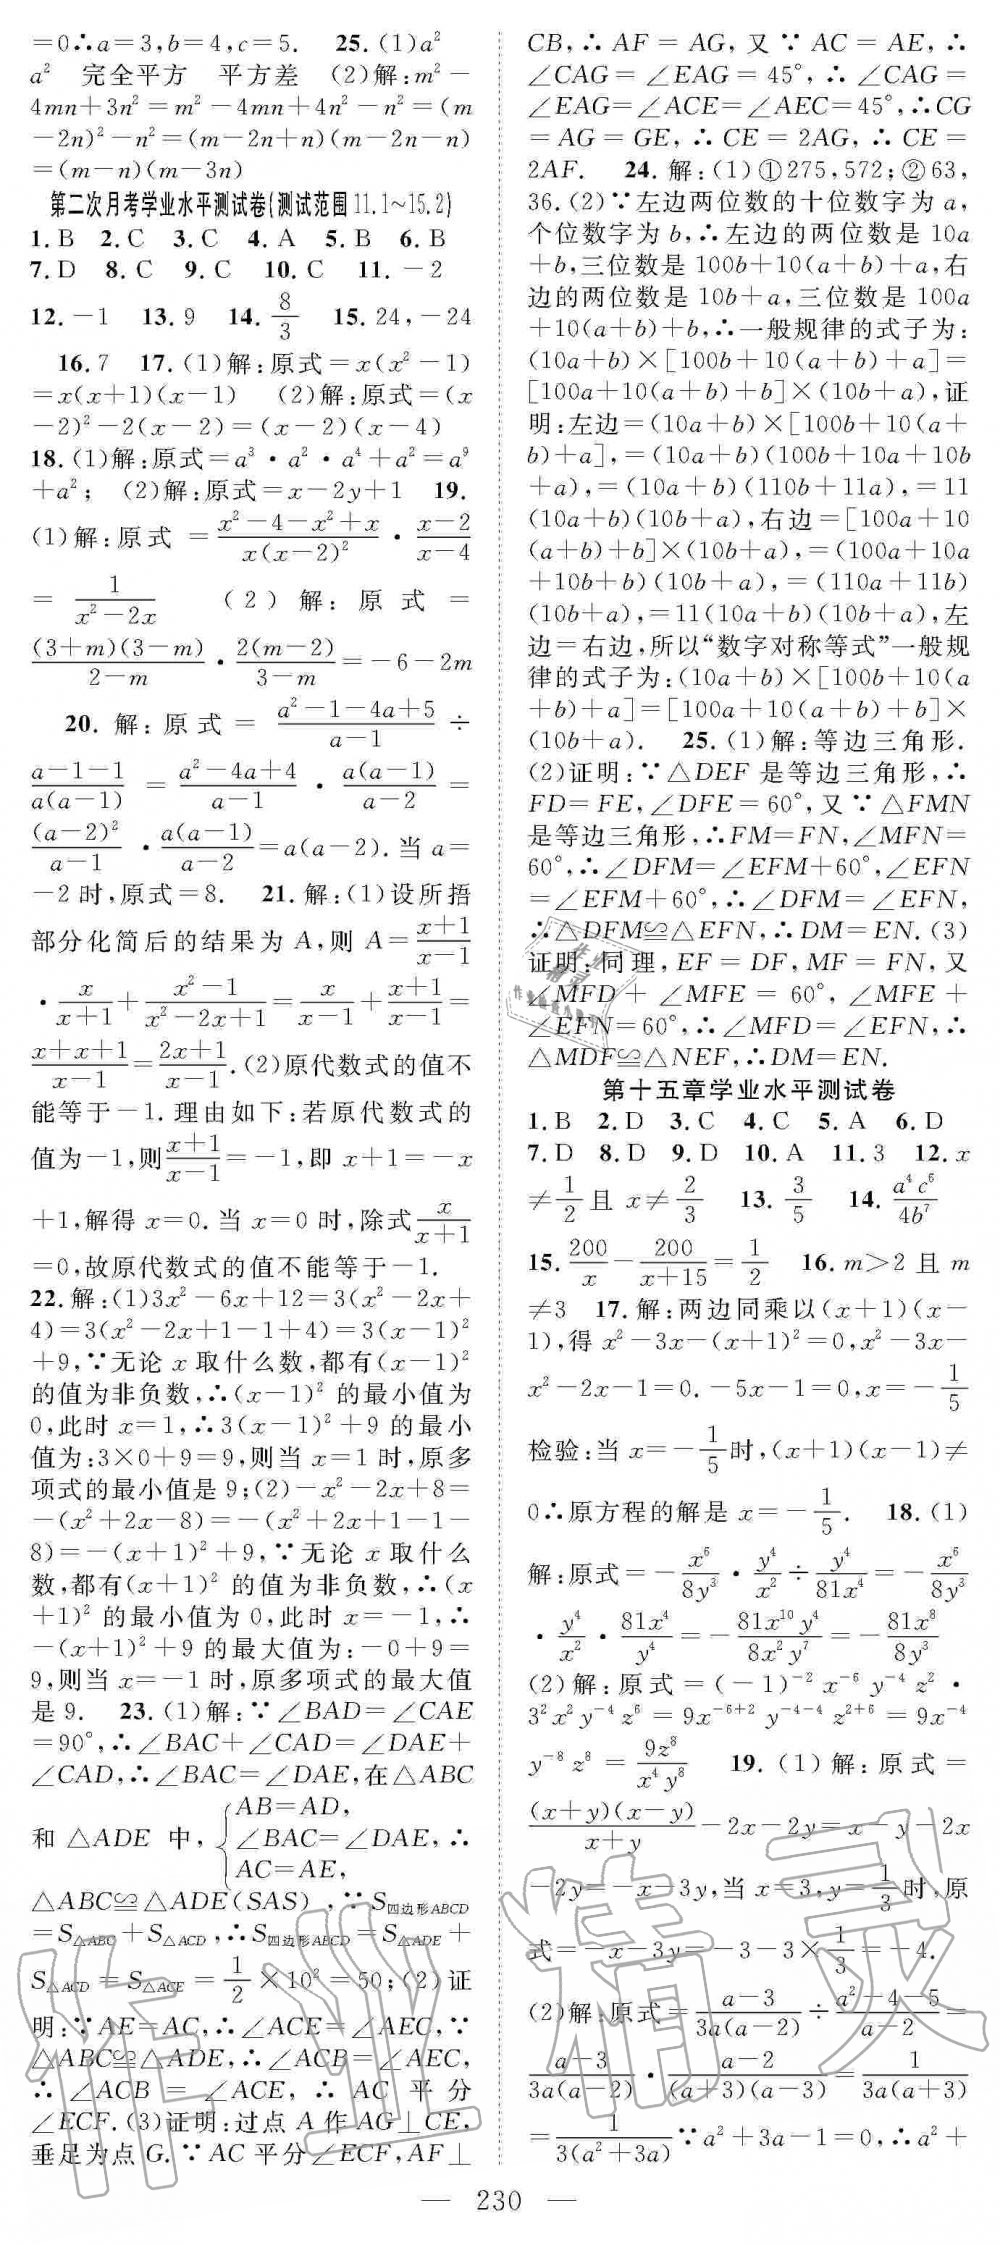 =0∴a=3,b=4,c=5. 25.(1)a²
a² 完全平方 平方差 (2)解:m²-
4mn+3n²=m²-4mn+4n²-n²=(m
-2n)²-n²=(m-2n+n)(m-2n-n)
=(m-n)(m-3n)
第二次月考学业水平测试卷(测试范围11.1~15.2)
1.B 2.C 3.C 4.A 5.B 6.B
7.D 8.C 9.C 10.C 11.-2
12.-1 13.9 14.8/3 15.24,-24
16.7 17.(1)解:原式=x(x²-1)
=x(x+1)(x-1) (2)解:原式=(x
-2)²-2(x-2)=(x-2)(x-4)
18.(1)解:原式=a³·a²·a⁴+a²=a⁹
+a²; (2)解:原式=x-2y+1 19.
(1)解:原式=(x²-4-x²+x)/(x(x-2)²)·(x-2)/(x-4)
=1/(x²-2x) (2)解:原式=
(3+m)(3-m)/(2-m)·2(m-2)/(3-m)=-6-2m
20.解:原式=(a²-1-4a+5)/(a-1)÷
(a-1-1)/(a(a-1))=(a²-4a+4)/(a-1)·a(a-1)/(a-2)=
(a-2)²/(a-1)·a(a-1)/(a-2)=a(a-2).当a=
-2时,原式=8. 21.解:(1)设所捂
部分化简后的结果为A,则A=(x+1)/(x-1)
·x/(x+1)+(x²-1)/(x²-2x+1)=x/(x-1)+(x+1)/(x-1)=
(x+x+1)/(x-1)=(2x+1)/(x-1).(2)原代数式的值不
能等于-1.理由如下:若原代数式的
值为-1,则(x+1)/(x-1)=-1,即x+1=-x
+1,解得x=0.当x=0时,除式x/(x+1)
=0,故原代数式的值不能等于-1.
22.解:(1)3x²-6x+12=3(x²-2x+
4)=3(x²-2x+1-1+4)=3(x-1)²
+9,∵无论x取什么数,都有(x-1)²
的值为非负数,∴(x-1)²的最小值为
0,此时x=1,∴3(x-1)²+9的最小
值为:3×0+9=9,则当x=1时,原多
项式的最小值是9;(2)-x²-2x+8=
-(x²+2x-8)=-(x²+2x+1-1-
8)=-(x+1)²+9,∵无论x取什么
数,都有(x+1)²的值为非负数,∴(x
+1)²的最小值为0,此时x=-1,∴
-(x+1)²+9的最大值为:-0+9=
9,则当x=-1时,原多项式的最大值
是9. 23.(1)解:∵∠BAD=∠CAE
=90°,∴∠BAC+∠CAD=∠DAE+
∠CAD,∴∠BAC=∠DAE,在△ABC
和△ADE中,{AB=AD,
∠BAC=∠DAE,∴
AC=AE,
△ABC≌△ADE(SAS),∵S四边形ABCD
=S△ABC+S△ACD,∴S四边形ABCD=S△ADE+
S△ACD=S△ACE=1/2×10²=50;(2)证
明:∵AE=AC,∴∠ACE=∠AEC,∵
△ABC≌△ADE,∴∠ACB=∠AEC,
∴∠ACB=∠ACE,∴AC平分
∠ECF.(3)证明:过点A作AG⊥CE,
垂足为点G.∵AC平分∠ECF,AF⊥
CB,∴AF=AG,又∵AC=AE,∴
∠CAG=∠EAG=45°,∴∠CAG=
∠EAG=∠ACE=∠AEC=45°,∴CG
=AG=GE,∴CE=2AG,∴CE=
2AF. 24.解:(1)①275,572;②63,
36.(2)∵左边两位数的十位数字为a,
个位数字为b,∴左边的两位数是10a
+b,三位数是100b+10(a+b)+a,右
边的两位数是10b+a,三位数是100a
+10(a+b)+b,∴一般规律的式子为:
(10a+b)×[100b+10(a+b)+a]=
[100a+10(a+b)+b]×(10b+a),证
明:左边=(10a+b)×[100b+10(a+
b)+a],=(10a+b)(100b+10a+10b
+a),=(10a+b)(110b+11a),=11
(10a+b)(10b+a),右边=[100a+10
(a+b)+b]×(10b+a),=(100a+10a
+10b+b)(10b+a),=(110a+11b)
(10b+a),=11(10a+b)(10b+a),左
边=右边,所以“数字对称等式”一般规
律的式子为:(10a+b)×[100b+10(a
+b)+a]=[100a+10(a+b)+b]×
(10b+a). 25.(1)解:等边三角形.
(2)证明:∵△DEF是等边三角形,∴
FD=FE,∠DFE=60°,又∵△FMN
是等边三角形,∴FM=FN,∠MFN=
60°,∴∠DFM=∠EFM+60°,∠EFN
=∠EFM+60°,∴∠DFM=∠EFN,
∴△DFM≌△EFN,∴DM=EN.(3)
证明:同理,EF=DF,MF=FN,又
∠MFD+∠MFE=60°,∠MFE+
∠EFN=60°,∴∠MFD=∠EFN,∴
△MDF≌△NEF,∴DM=EN.
第十五章学业水平测试卷
1.B 2.D 3.C 4.C 5.A 6.D
7.D 8.D 9.D 10.A 11.3 12.x
≠1/2且x≠2/3 13.3/5 14.a⁴c⁶/4b⁷
15.200/x-200/(x+15)=1/2 16.m>2且m
≠3 17.解:两边同乘以(x+1)(x-
1),得x²-3x-(x+1)²=0,x²-3x-
x²-2x-1=0.-5x-1=0,x=-1/5
检验:当x=-1/5时,(x+1)(x-1)≠
0∴原方程的解是x=-1/5. 18.(1)
解:原式=-x⁶/8y³·y⁴/x²÷y⁴/81x⁴=-x⁶/8y³
·y⁴/x²·81x⁴/y⁴=-81x¹⁰y⁴/8x²y⁷=-81x⁸/8y³
(2)解:原式=(-1)⁻²x⁻⁶y⁻⁴z²·
3²x²y⁻⁴z⁶=9x⁻⁶⁺²y⁻⁴⁻⁴z²⁺⁶=9x⁻⁴
y⁻⁸z⁸=9z⁸/x⁴y⁸ 19.(1)解:原式=
(x+y)(x-y)/(x+y)-2x-2y=x-y-2x
-2y=-x-3y,当x=3,y=1/3时,原
式=-x-3y=-3-3×1/3=-4.
(2)解:原式=(a-3)/(3a(a-2))÷(a²-4-5)/(a-2)=
(a-3)/(3a(a-2))·(a-2)/((a+3)(a-3))=1/(3a(a+3))
=1/(3(a²+3a))∵a²+3a-1=0,∴a²+
— 230 —
作业精灵